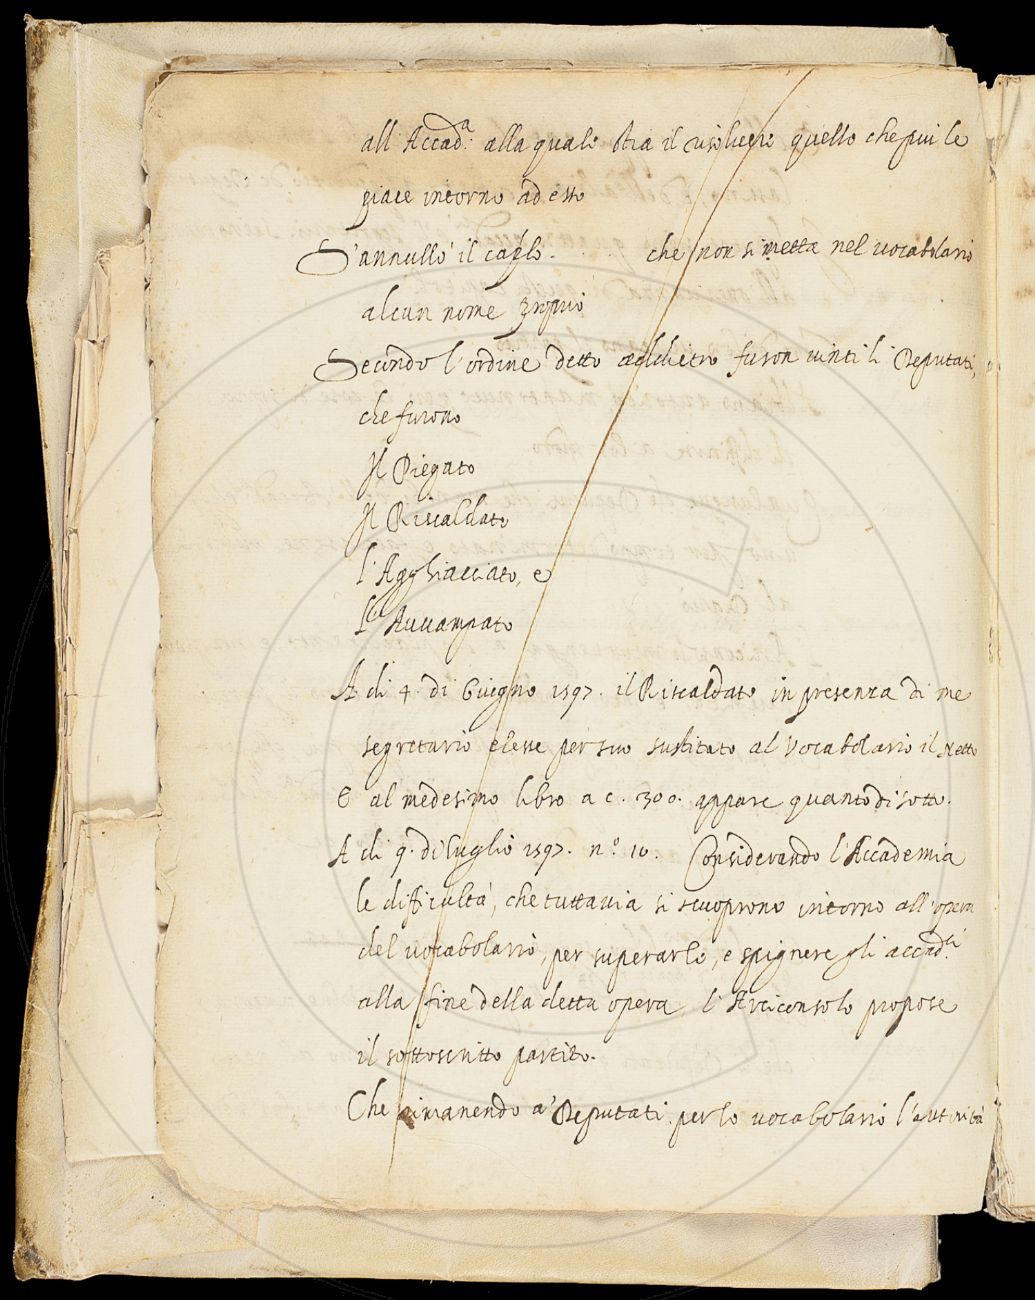 all'Accad.ª alla quale stia il risolvere quello che più le
piace intorno ad esso
S'annullò il cap.lo . . . che non si metta nel vocabolario
alcun nome proprio
Secondo l'ordine detto addietro furon vinti li Deputati,
che furono
Il Piegato
Il Riscaldato
l'Agghiacciato, e
L'Avvampato
A di 4. di Giugno 1597. il Riscaldato in presenza di me
segretario elesse per suo sustituto al Vocabolario il Netto
E al medesimo libro a c. 300. appare quanto di sotto.
A di 9. di luglio 1597. n.º 10. Considerando l'Accademia
le difficultà, che tuttavia si scuoprono intorno all'opera
del vocabolario, per superarle, e spignere gli accad.ci
alla fine della detta opera, l'Arciconsolo propose
il sottoscritto partito.
Che rimanendo a' Deputati per lo vocabolario l'autorità